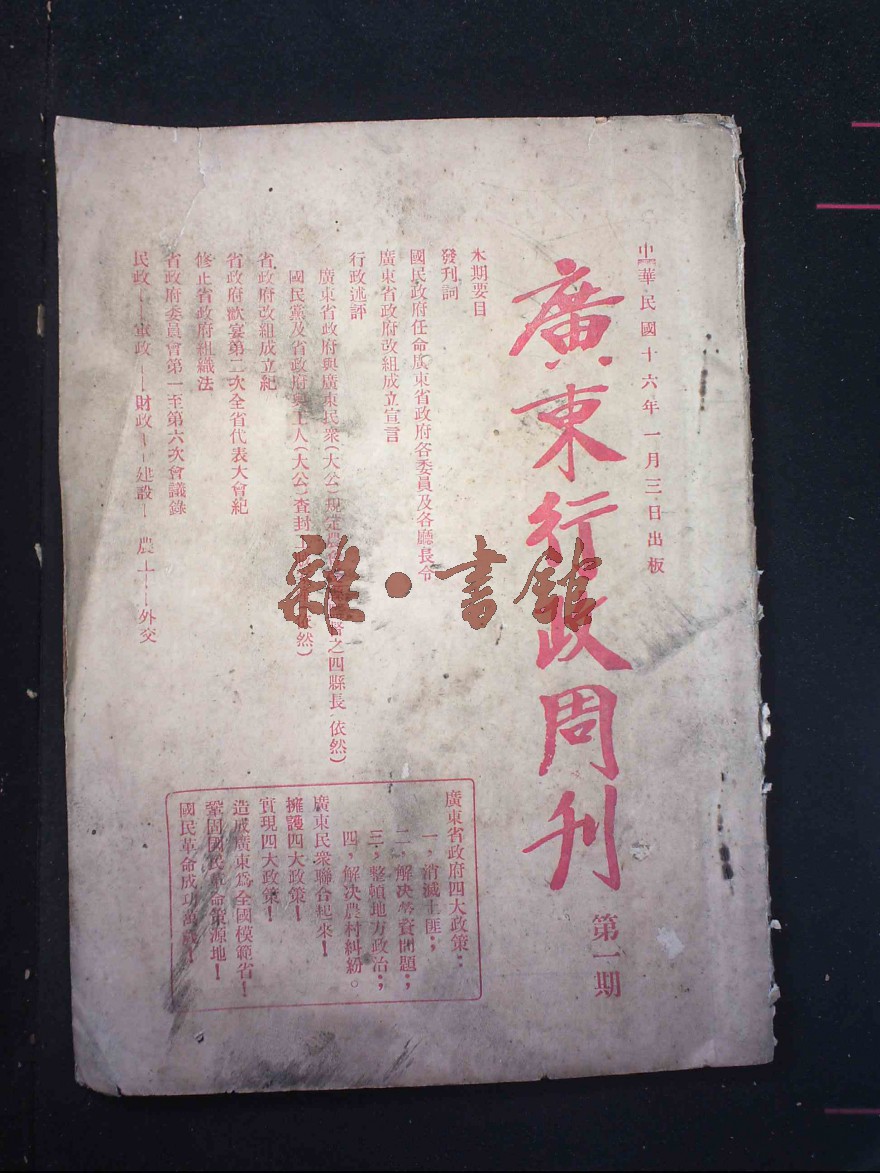 中華民國十六年一月三日出板
廣東行政周刊
第一期
本期要目
發刊詞
國民政府任命廣東省政府各委員及各廳長令
廣東省政府改組成立宣言
行政述評
廣東省政府與廣東民衆(大公)規定 之四縣長(依然)
國民黨及省政府與工人(大公)查封 然)
省政府改組成立紀
省政府歡宴第二次全省代表大會紀
修正省政府組織法
省政府委員會第一至第六次會議錄
民政——軍政——財政——建設——農工——外交
廣東省政府四大政策:
一,消滅土匪;
二,解決勞資問題;
三,整頓地方政治;
四,解決農村糾紛。
廣東民衆聯合起來!
擁護四大政策!
實現四大政策!
造成廣東爲全國模範省!
鞏固國民革命策源地!
國民革命成功萬歲!
雜·書館